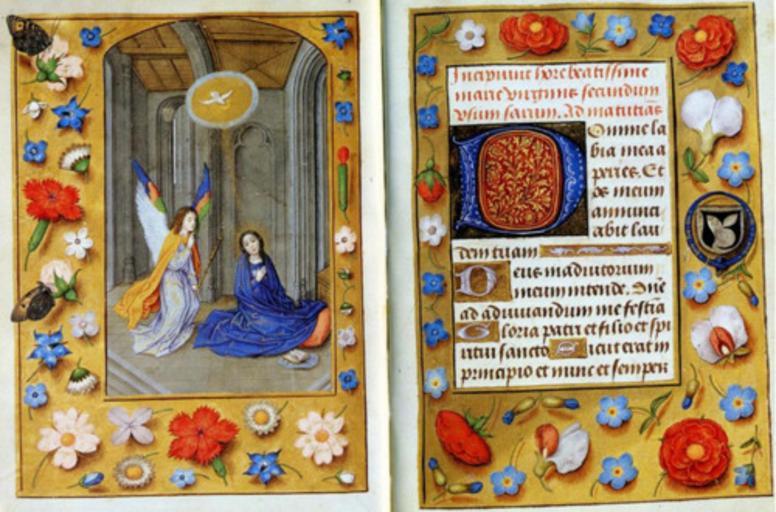 Incipiunt hore beatissime
marie virginis secundum
usum sarum. Ad matutinas
Domine la
bia mea a
peries. Et
os meum
annunci
abit lau
dem tuam
Deus in adiutorium
meum intende. Dne
ad adiuvandum me festina
Gloria patri et filio et spi
ritui sancto Sicut erat in
principio et nunc et semper